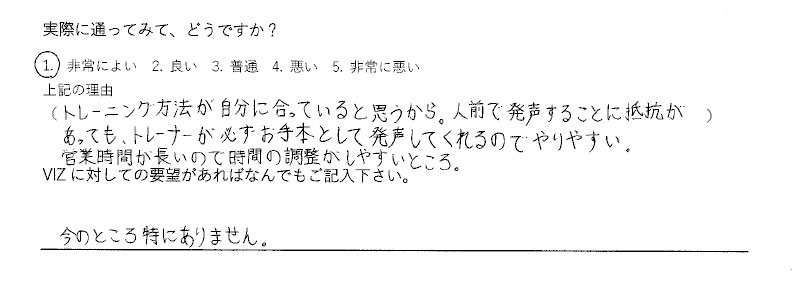 実際に通ってみて、どうですか？
1. 非常によい 2. 良い 3. 普通 4. 悪い 5. 非常に悪い
上記の理由
（トレーニング方法が自分に合っていると思うから。人前で発声することに抵抗が ）
あっても、トレーナーが必ずお手本として発声してくれるのでやりやすい。
営業時間が長いので時間の調整がしやすいところ。
VIZに対しての要望があればなんでもご記入下さい。
今のところ特にありません。